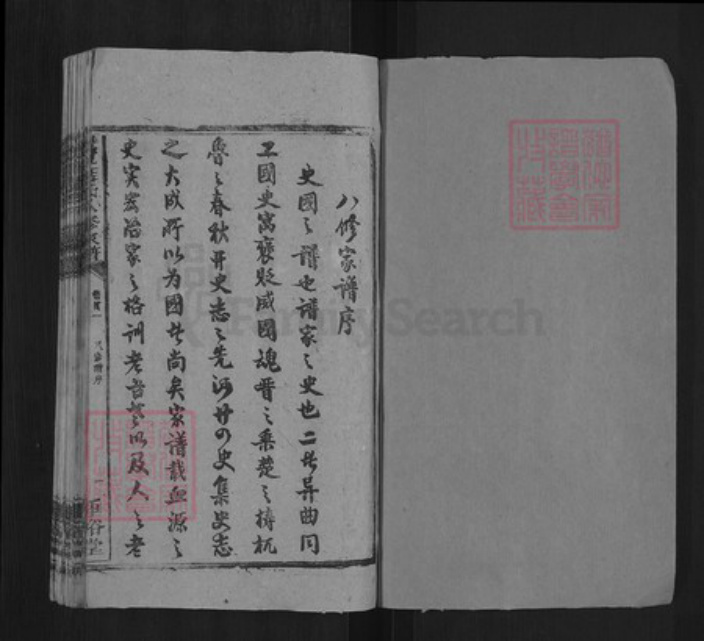 八修家譜序
史國之譜也譜家之史也二者异曲同
工國史寓褒貶成國魂晋之乘楚之梼杌
魯之春秋开史志之先河廿四史集史志
之大成所以为國者尚矣家譜載血源之
史实治家之格训老吾老以及人之老
卷首一
八修譜序
一
FamilySearch